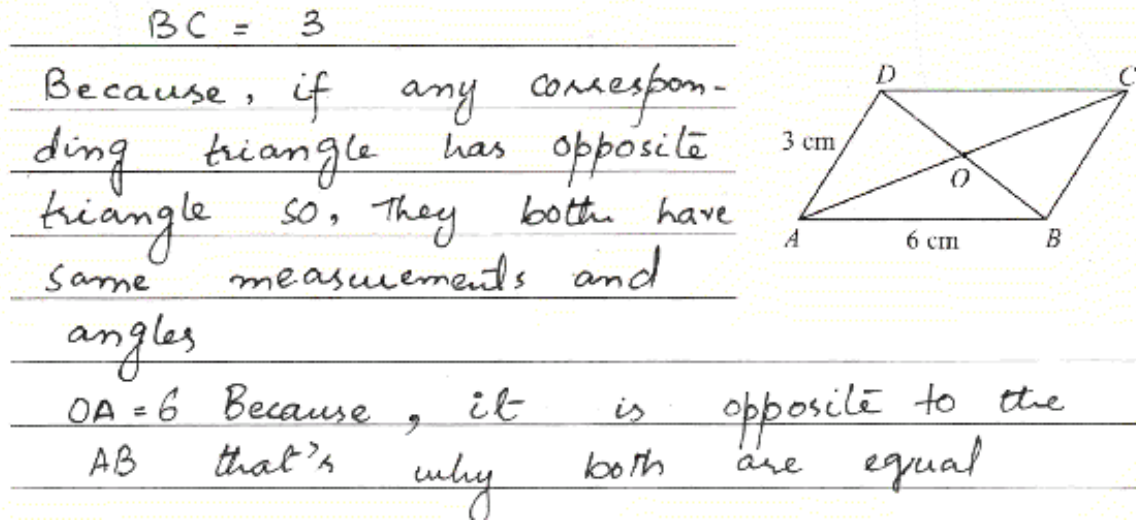 BC = 3
Because, if any correspon-
ding triangle has opposite
triangle so, They both have
same measurements and
angles
OA = 6 Because, it is opposite to the
AB that's why both are equal
D
C
3 cm
O
A
6 cm
B